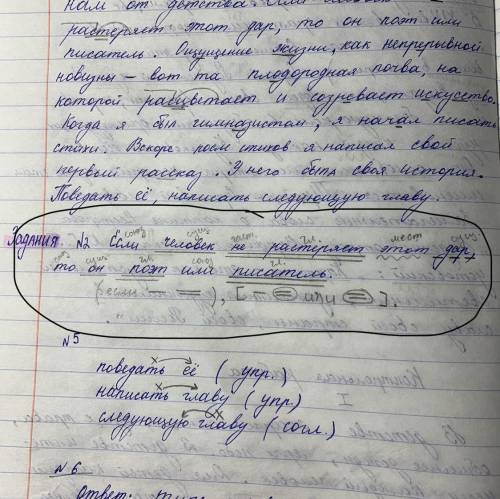 нам от детства. Если человек
растеряет этот дар, то он поэт или
писатель. Ощущение жизни, как непрерывной
новизны – вот та плодородная почва, на
которой расцветает и созревает искусство.
Когда я был гимназистом, я начал писать
стихи. Вскоре после стихов я написал свой
первый рассказ. У него была своя история.
Поведать её, написать следующую главу.
Задания №2 Если человек не растеряет этот дар,
то он поэт или писатель.
(если — =), [— = или =].
№5
поведать её (упр.)
написать главу (упр)
следующую главу (согл)
№6
Ответ: